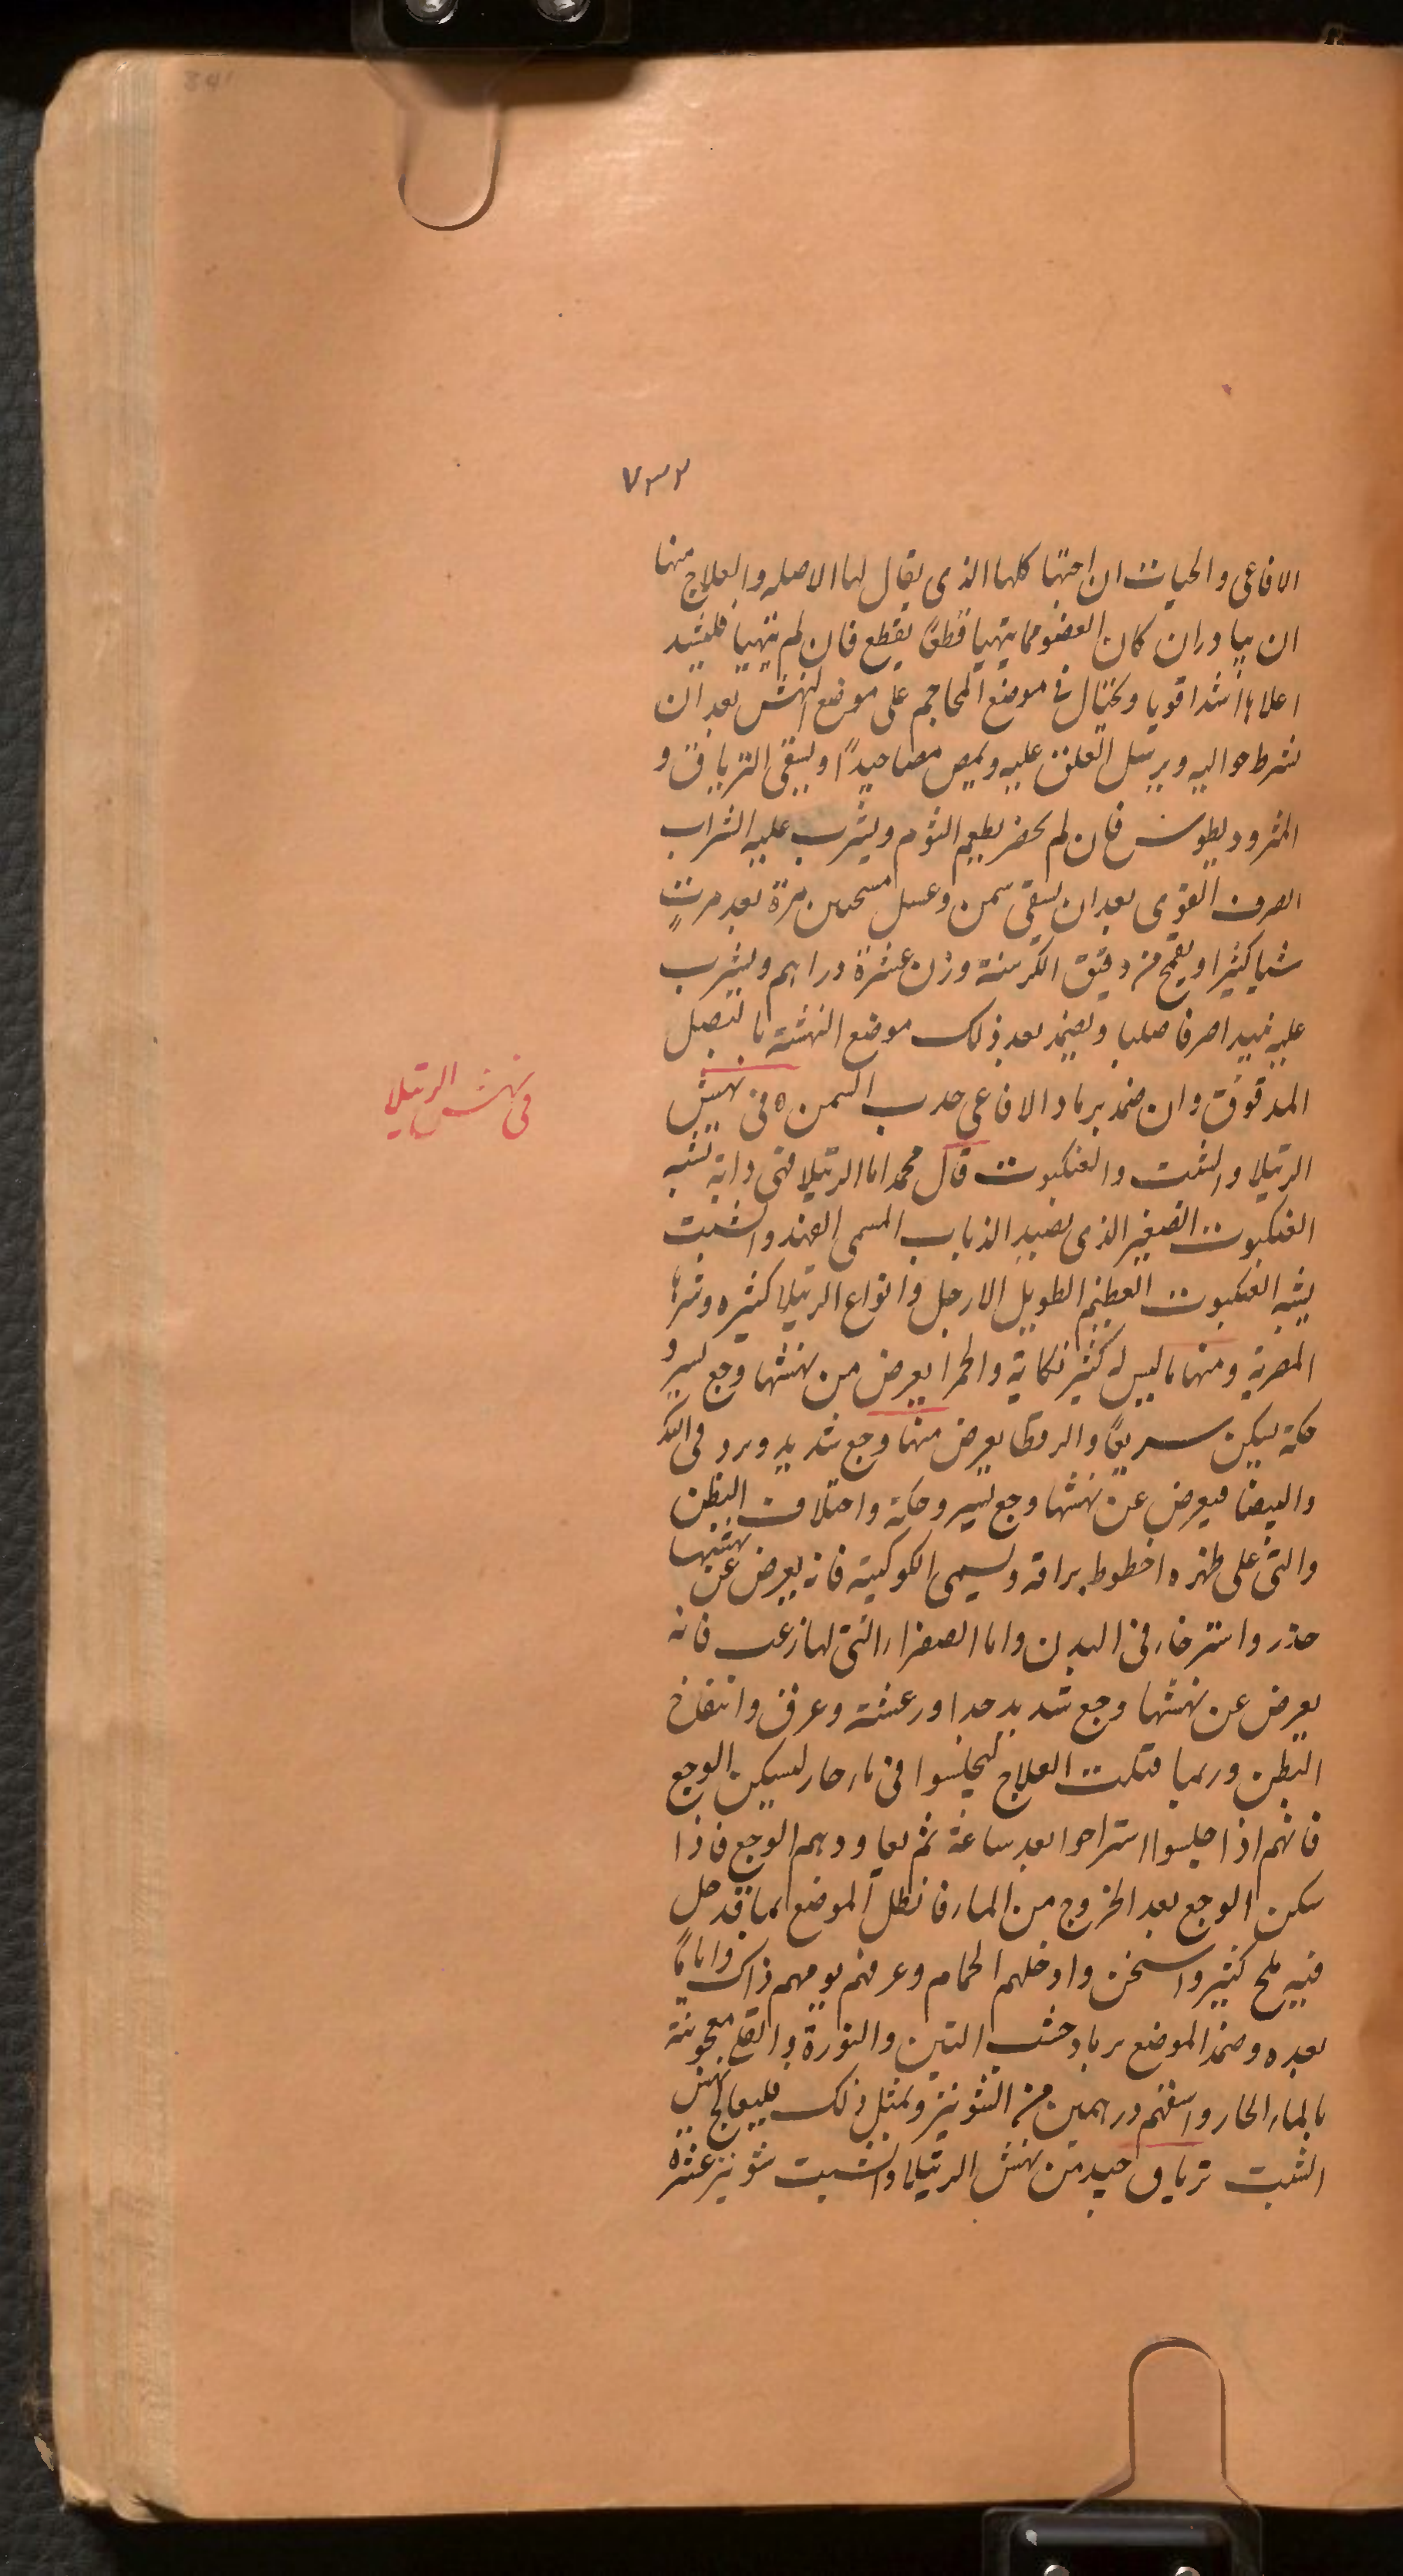 ٧٣٢
الافاعى والحيات ان اخبثها كلها الذى يقال لها الاصله والعلاج منها
ان يبادر ان كان العضو مما يتهيا قطعً يقطع فان لم يتهيا فليشد
اعلاها شدا قويا ويحتال فى موضع المحاجم على موضع النهش بعد ان
شرط حواليه ويرسل العلق عليه ويمص مصا جيدًا ويسقى الترياق و
المثروديطوس فان لم يحضر يطعم الثوم ويشرب عليه الشراب
الصرف القوى بعد ان يسقى سمن وعسل مسخن مرة بعد مرتٍ
شيا كثيرا ويقمح من دقيق الكرسنة وزن عشرة دراهم ويشرب
عليه نبيدا صرفا صلبا ويضمد بعد ذلك موضع النهشة بالبصل
المدقوق وان ضمد برماد الافاعى جذب السم ٥ فى نهش
فى نهش الرتيلا
الرتيلا والشبت والعنكبوت قال محمد اما الرتيلا فهى دابة تشبه
العنكبوت الصغير الذى يصيد الذباب المسمى الفهد والشبت
يشبه العنكبوت العظيم الطويل الارجل وانواع الرتيلا كثيره وشرها
المصرية ومنها ما ليس له كثير نكاية والحمرا يعرض من نهشها وجع يسير و
حكة يسكن سريعًا والرقطا يعرض منها وجع شديد وبرد فى
والبيضا فيعرض عن نهشها وجع يسير وحكة واختلاف البطن
والتى على ظهره اخطوط براقة ويسمى الكوكبية فانه يعرض عن نهشها
خدر واسترخاء فى البدن واما الصفراء التى لها زغب فانه
يعرض عن نهشها وجع شديد جدا ورعشة وعرق وانتفاخ
البطن وربما قتلت العلاج ليجلسوا فى ماء حار ليسكن الوجع
فانهم اذا جلسوا استراحوا بعد ساعة ثم يعاودهم الوجع فاذا
سكن الوجع بعد الخروج من الماء فانطل الموضع بماء قد حل
فيه ملح كثير واسخن وادخلهم الحمام وعرقهم يومهم ذاك وايامًا
بعده وضمد الموضع برماد خشب التين والنورة والقلى معجونة
بالماء الحار واسقهم درهمين من الشونيز وبمثل ذلك فليعالج نهش
الشبت ترياق جيد من نهش الرتيلا والشبت شونيز عشره